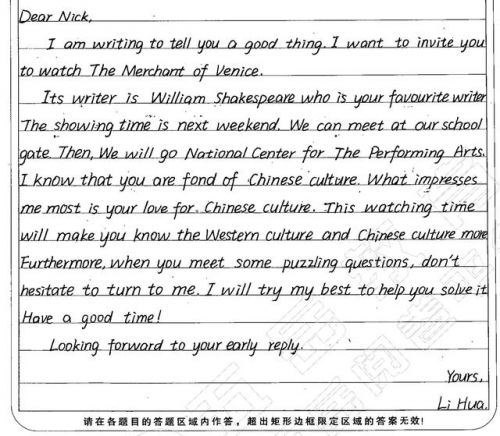 Dear Nick,
I am writing to tell you a good thing. I want to invite you
to watch The Merchant of Venice.
Its writer is William Shakespeare who is your favourite writer
The showing time is next weekend. We can meet at our school
gate. Then, We will go National Center for The Performing Arts.
I know that you are fond of Chinese culture. What impresses
me most is your love for. Chinese culture. This watching time
will make you know the Western culture and Chinese culture more.
Furthermore, when you meet some puzzling questions, don't
hesitate to turn to me. I will try my best to help you solve it
Have a good time!
Looking forward to your early reply.
Yours,
Li Hua.
请在各题目的答题区域内作答，超出矩形边框限定区域的答案无效!